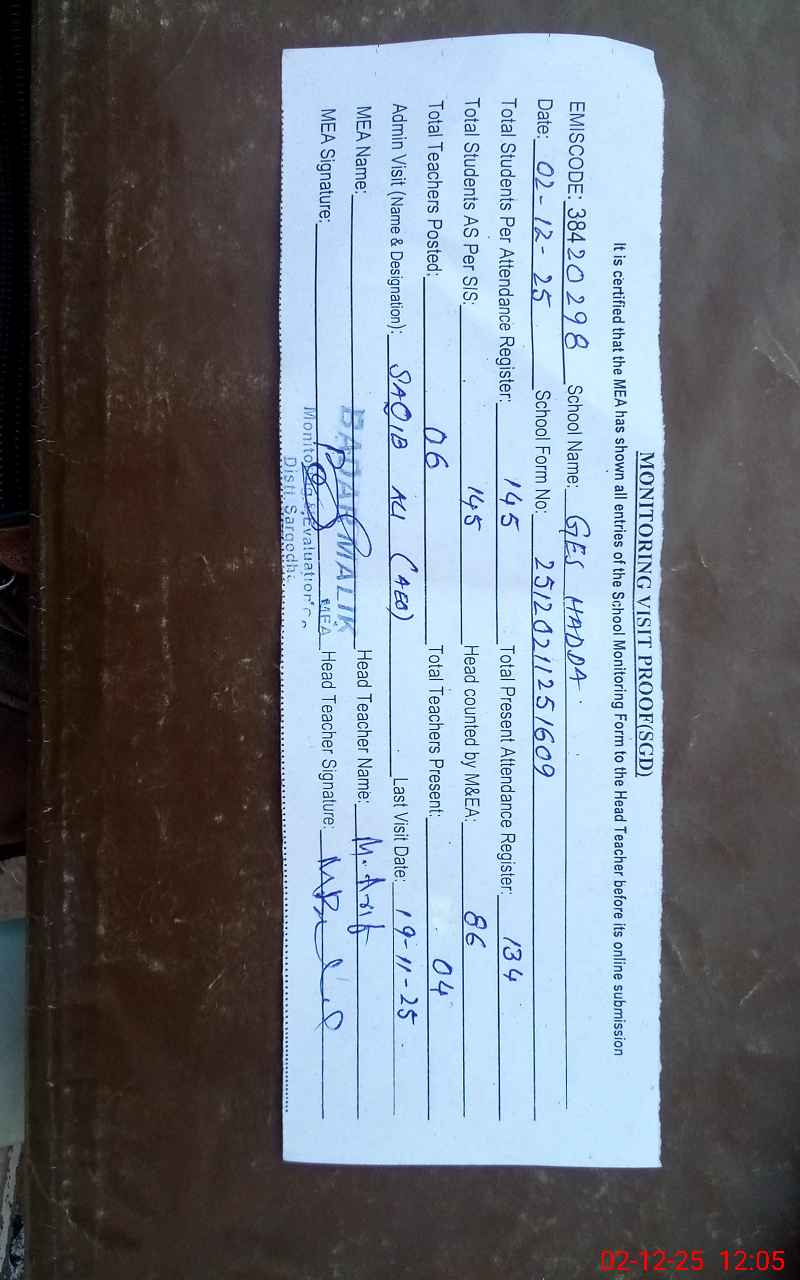 MONITORING VISIT PROOF(SGD)
It is certified that the MEA has shown all entries of the School Monitoring Form to the Head Teacher before its online submission
EMISCODE: 38420298 School Name: GES HADDA
Date: 02-12-25 School Form No: 2512021125 1609
Total Students Per Attendance Register: 145 Total Present Attendance Register: 134
Total Students AS Per SIS: 145 Head counted by M&EA: 86
Total Teachers Posted: 06 Total Teachers Present: 04
Admin Visit (Name & Designation): SAQIB ALI (AEO) Last Visit Date: 19-11-25
MEA Name: BABAR MALIK Head Teacher Name: M. Arif
MEA Signature: MEA Head Teacher Signature:
Distt. Sargodha
02-12-25 12:05